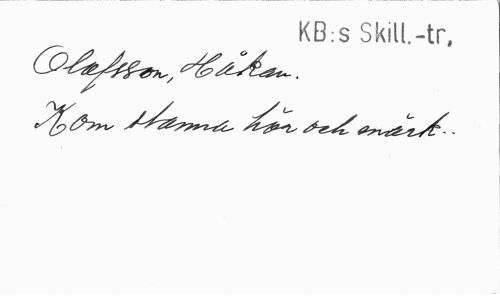 KB:s Skill.-tr,
Olafsson, Håkan.
Kom stanna här och märk..